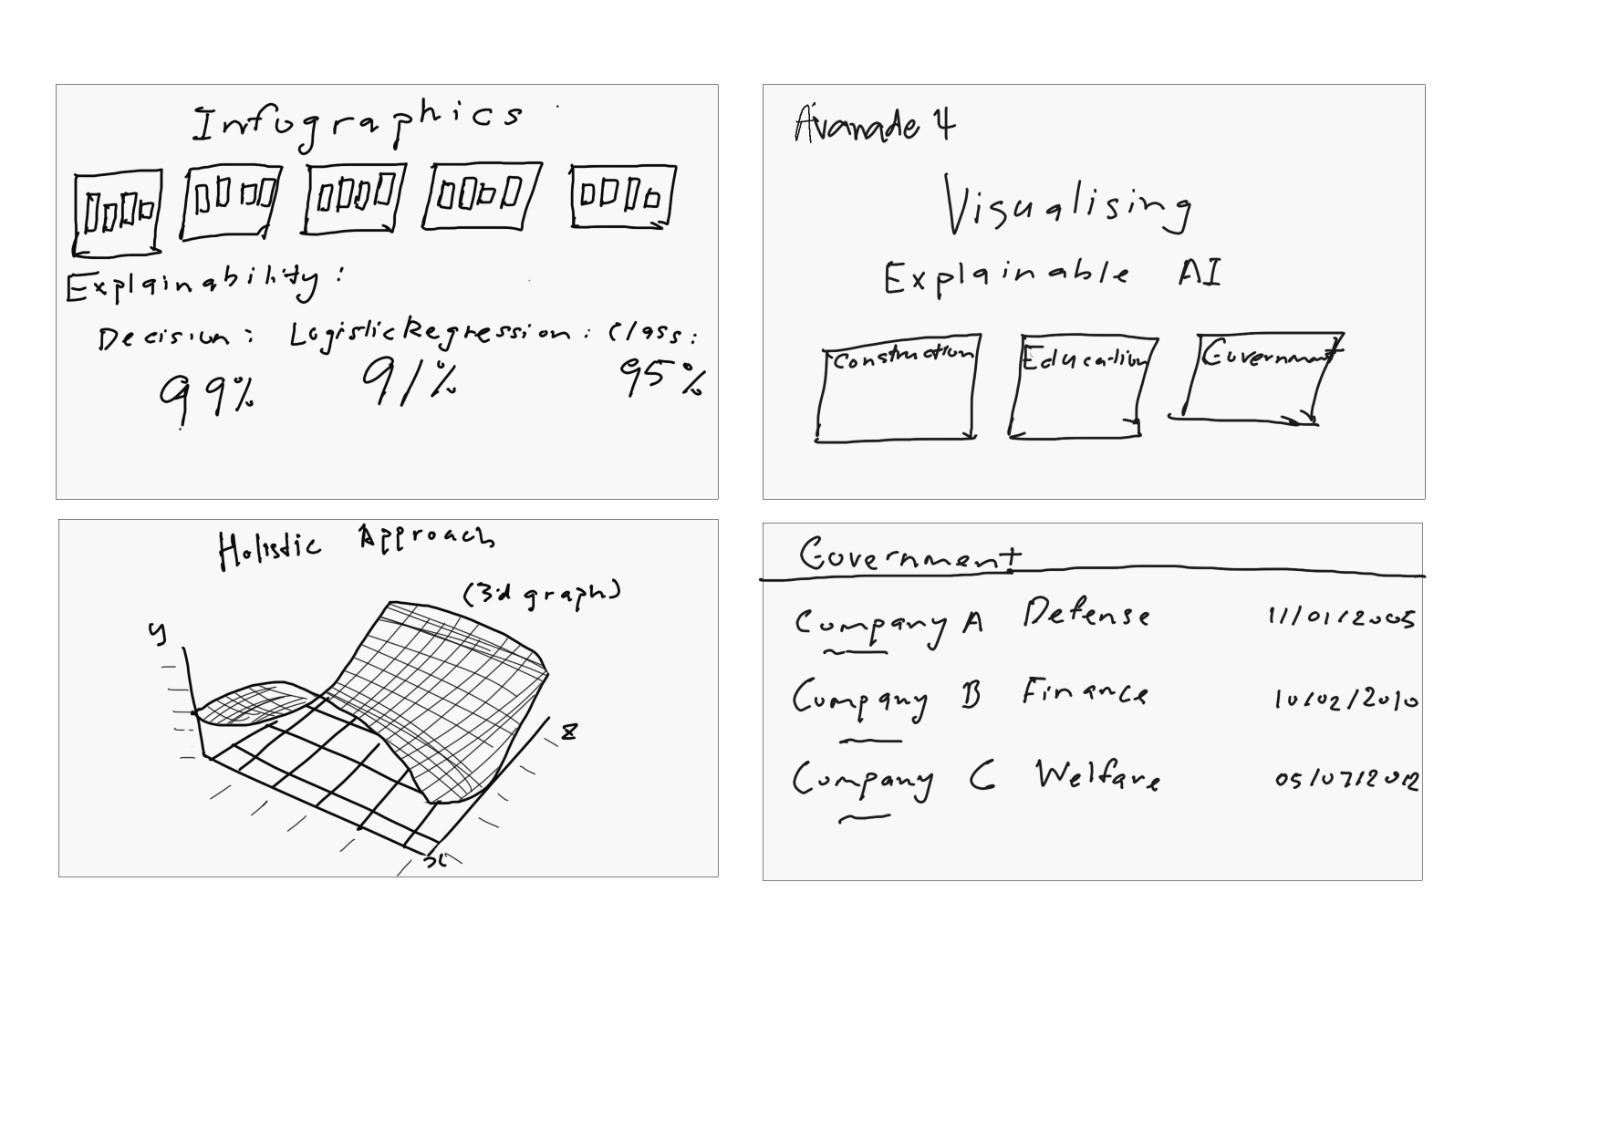 Infographics
Explainability:
Decision: Logistic Regression: Class:
99% 91% 95%
Avanade 4
Visualising
Explainable AI
Construction Education Government
Holistic Approach
(3d graph)
y
z
x
Government
Company A Defense 11/01/2005
Company B Finance 10/02/2010
Company C Welfare 05/07/2012